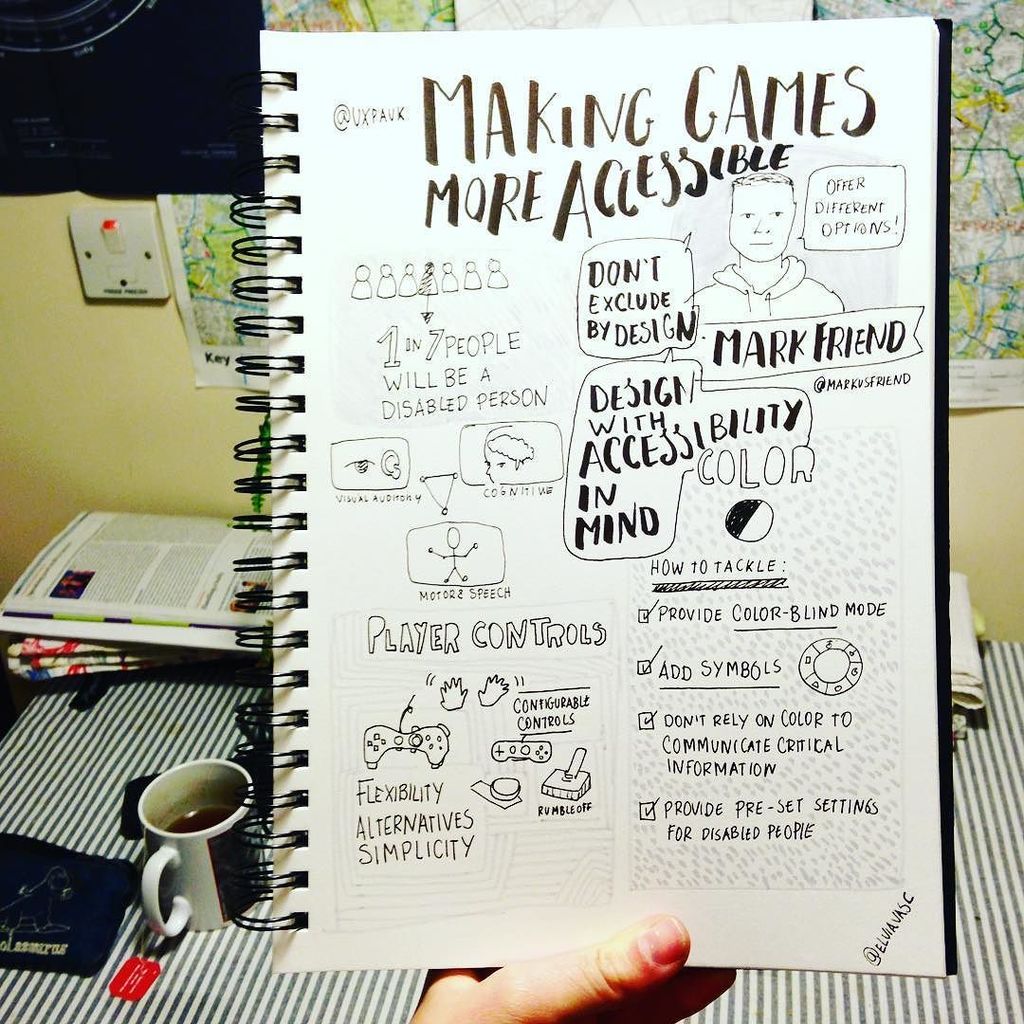 @UXPAUK
MAKING GAMES
MORE ACCESSIBLE
OFFER
DIFFERENT
OPTIONS!
DON'T
EXCLUDE
BY DESIGN
MARK FRIEND
@MARKUSFRIEND
1 IN 7 PEOPLE
WILL BE A
DISABLED PERSON
DESIGN
WITH
ACCESSIBILITY
IN
MIND
VISUAL AUDITORY
COGNITIVE
MOTOR & SPEECH
PLAYER CONTROLS
CONFIGURABLE
CONTROLS
RUMBLE OFF
FLEXIBILITY
ALTERNATIVES
SIMPLICITY
COLOR
HOW TO TACKLE:
PROVIDE COLOR-BLIND MODE
ADD SYMBOLS
DON'T RELY ON COLOR TO
COMMUNICATE CRITICAL
INFORMATION
PROVIDE PRE-SET SETTINGS
FOR DISABLED PEOPLE
@ELVIAVASC
Key